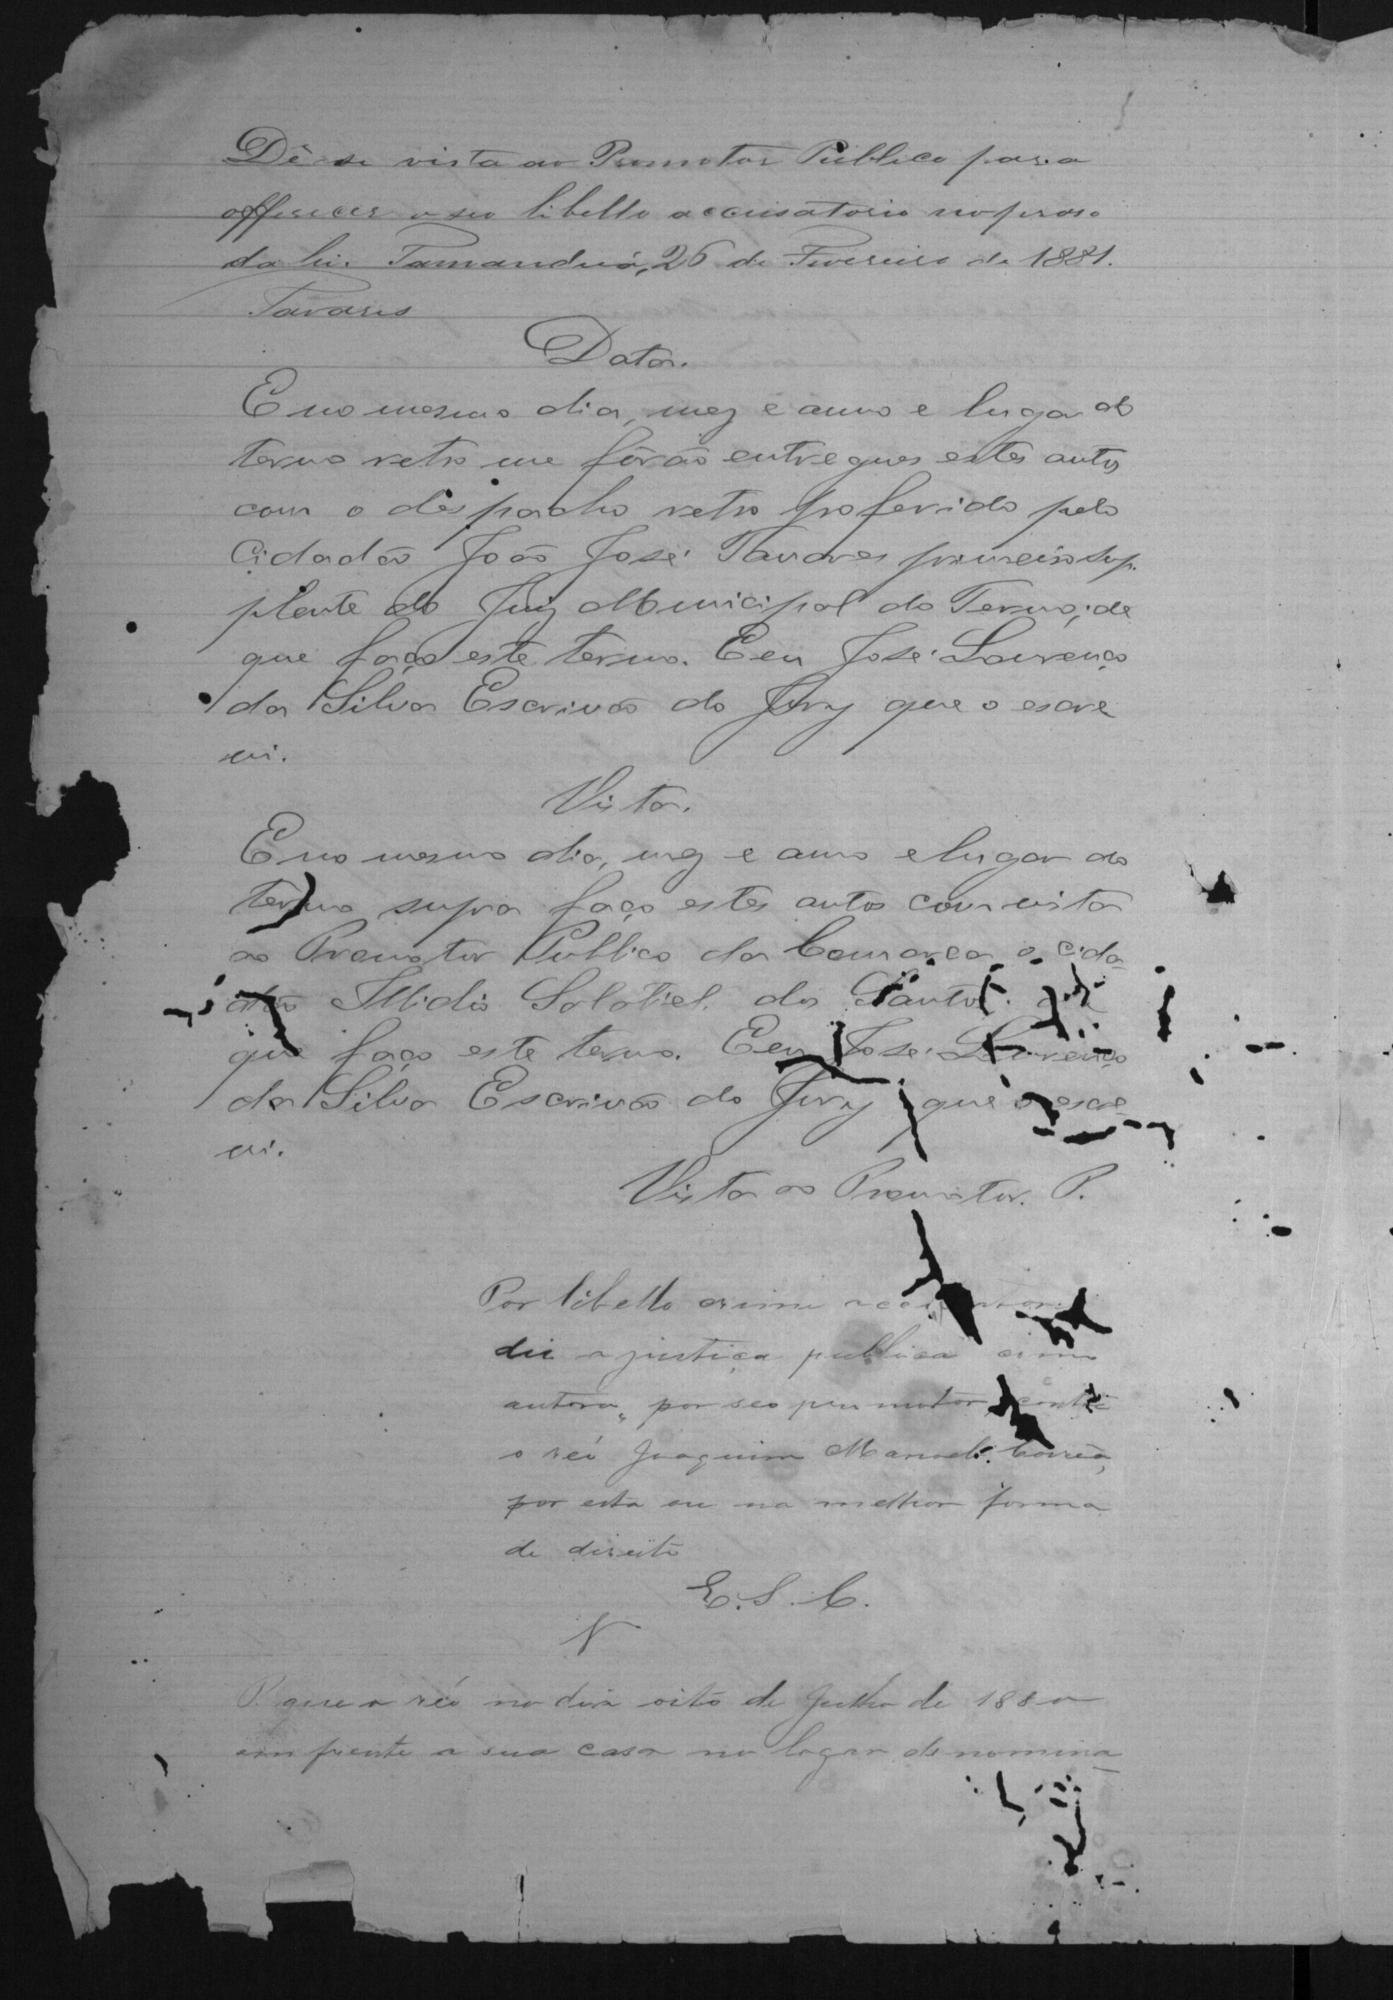 Dê-se vista ao Promotor Publico para
offerecer o seo libello accusatorio no praso
da lei. Tamanduá, 26 de Fevereiro de 1881.
Tavares
Data.
E no mesmo dia, mez e anno e lugar do
termo retro me fôrão entregues estes autos
com o despacho retro proferido pelo
Cidadão João José Tavares primeiro sup-
plente do Juiz Municipal do Termo; de
que faço este termo. E eu José Lourenço
da Silva Escrivão do Jury que o escre
vi.
Vista.
E no mesmo dia, mez e anno e lugar do
termo supra faço estes autos com vista
ao Promotor Publico da Comarca o cida-
dão Illidio Salatiel dos Santos. de
que faço este termo. E eu José Lourenço
da Silva Escrivão do Jury que o escre-
vi.
Vista ao Promotor. P.
Por libello crime accusatorio
diz a justiça publica como
autora, por seo promotor, contra
o réo Joaquim Manoel Corrêa,
por esta ou na melhor forma
de direito
E. S. C.
P. que o réo no dia oito de Julho de 1880
em frente a sua casa no logar denomina-